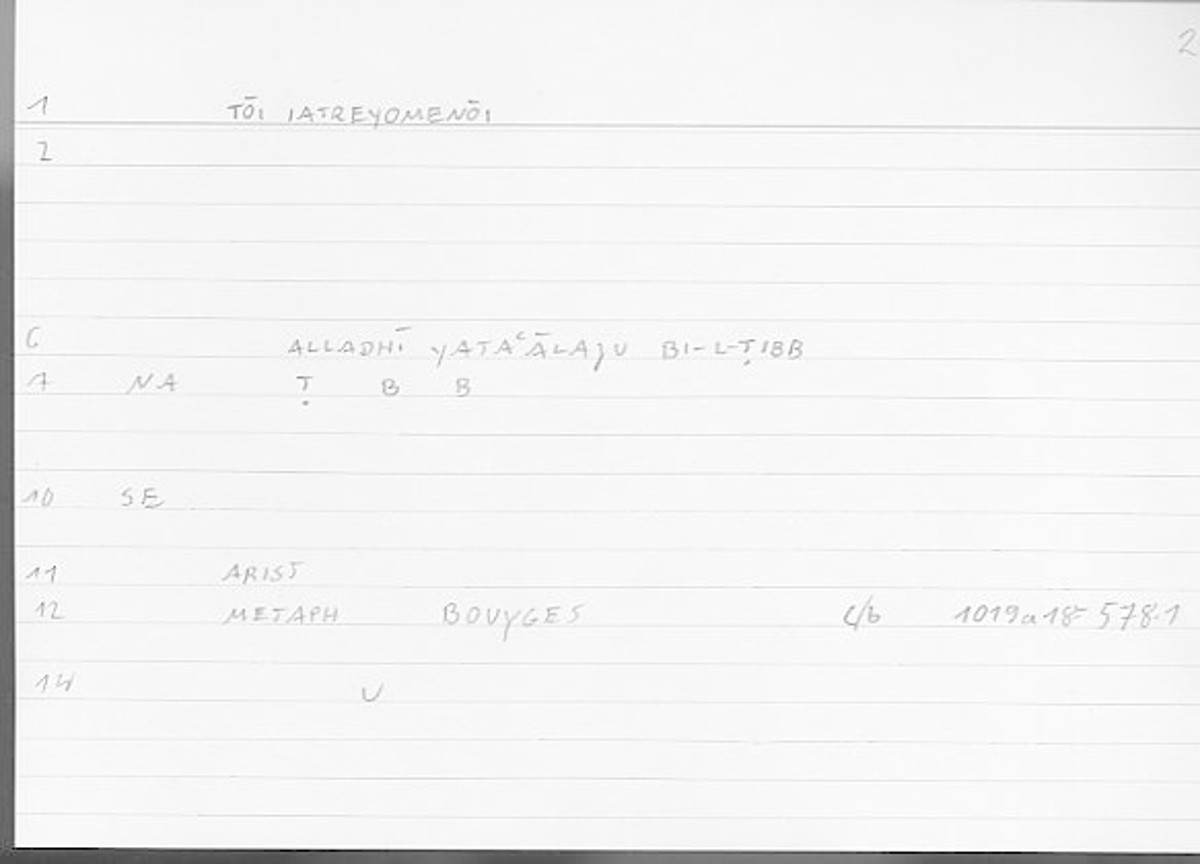 2
1 TŌI IATREYOMENŌI
2
6 ALLADHĪ YATAʿĀLAJU BI-L-ṬIBB
7 NA Ṭ B B
10 SE
11 ARIST
12 METAPH BOUYGES c/b 1019a18 578.1
14 U